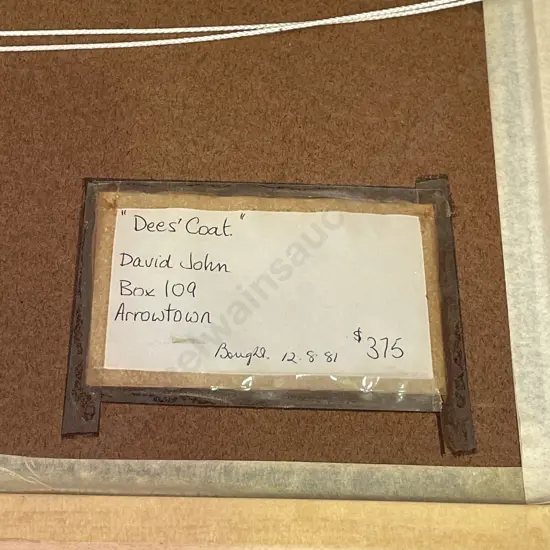 "Dees' Coat."
David John
Box 109
Arrowtown
$375
Bought. 12.8.81